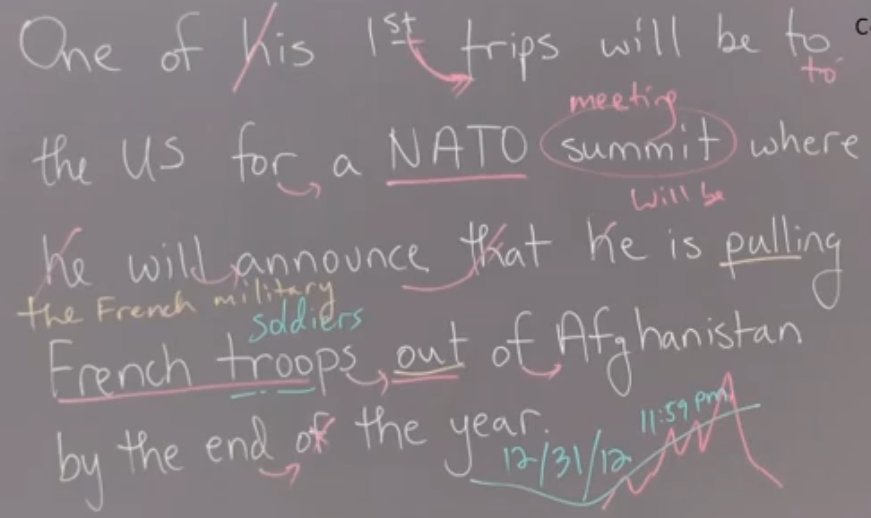 One of his 1st trips will be to
to
meeting
the US for a NATO summit where
will be
he will announce that he is pulling
the French military
soldiers
French troops out of Afghanistan
11:59 pm
by the end of the year.
12/31/12